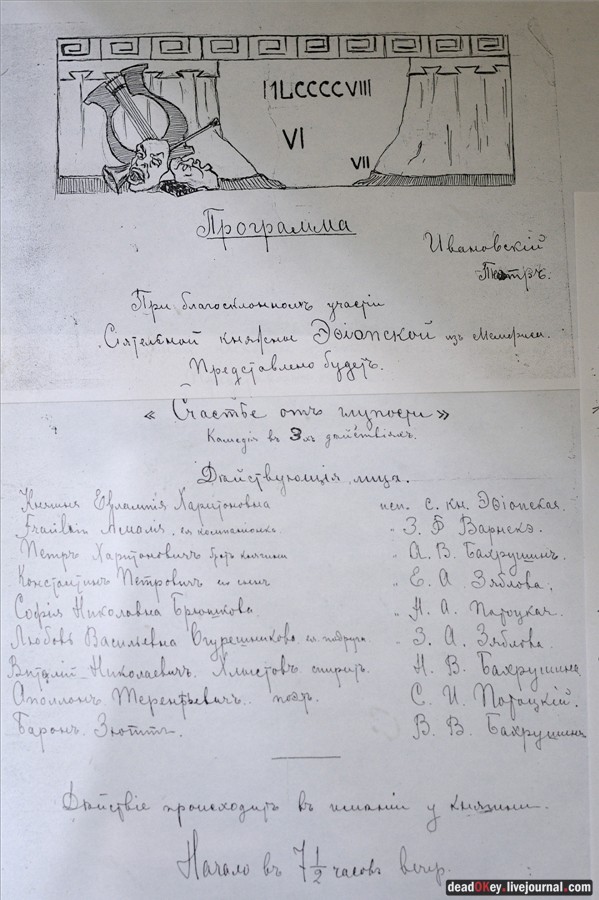 I1LCCCCVIII
VI
VII
Программа
Ивановскій
Петръ.
При благосклонномъ участіи
Сіятельной княжны Эѳіопской изъ
Представлено будетъ.
« Счастье отъ глупости »
Комедія въ 3хъ дѣйствіяхъ.
Дѣйствующія лица.
Княжна Евлампія Харитоновна исп. С. Кн. Эѳіопская.
Fräulein Амалія, ея компаніонка „ З. Ф Варнекэ.
Петръ Харитоновичъ братъ княжны „ А. В. Бахрушинъ.
Константинъ Петровичъ его сынъ Е. А Зяблова.
Софія Николаевна Брюшкова „ Н. А. Потоцкая.
Любовь Васильевна Огурешникова ея подруга З. А. Зяблова.
Виталій Николаевичъ Хлыстовъ спиритъ. Н. В. Бахрушина
Аполлонъ Терентьевичъ поэтъ. С. И. Потоцкій.
Баронъ В. В. Бахрушинъ
Дѣйствіе происходитъ въ имѣніи у княжны.
Начало въ 7 1/2 часовъ вечер.
deadOKey.livejournal.com